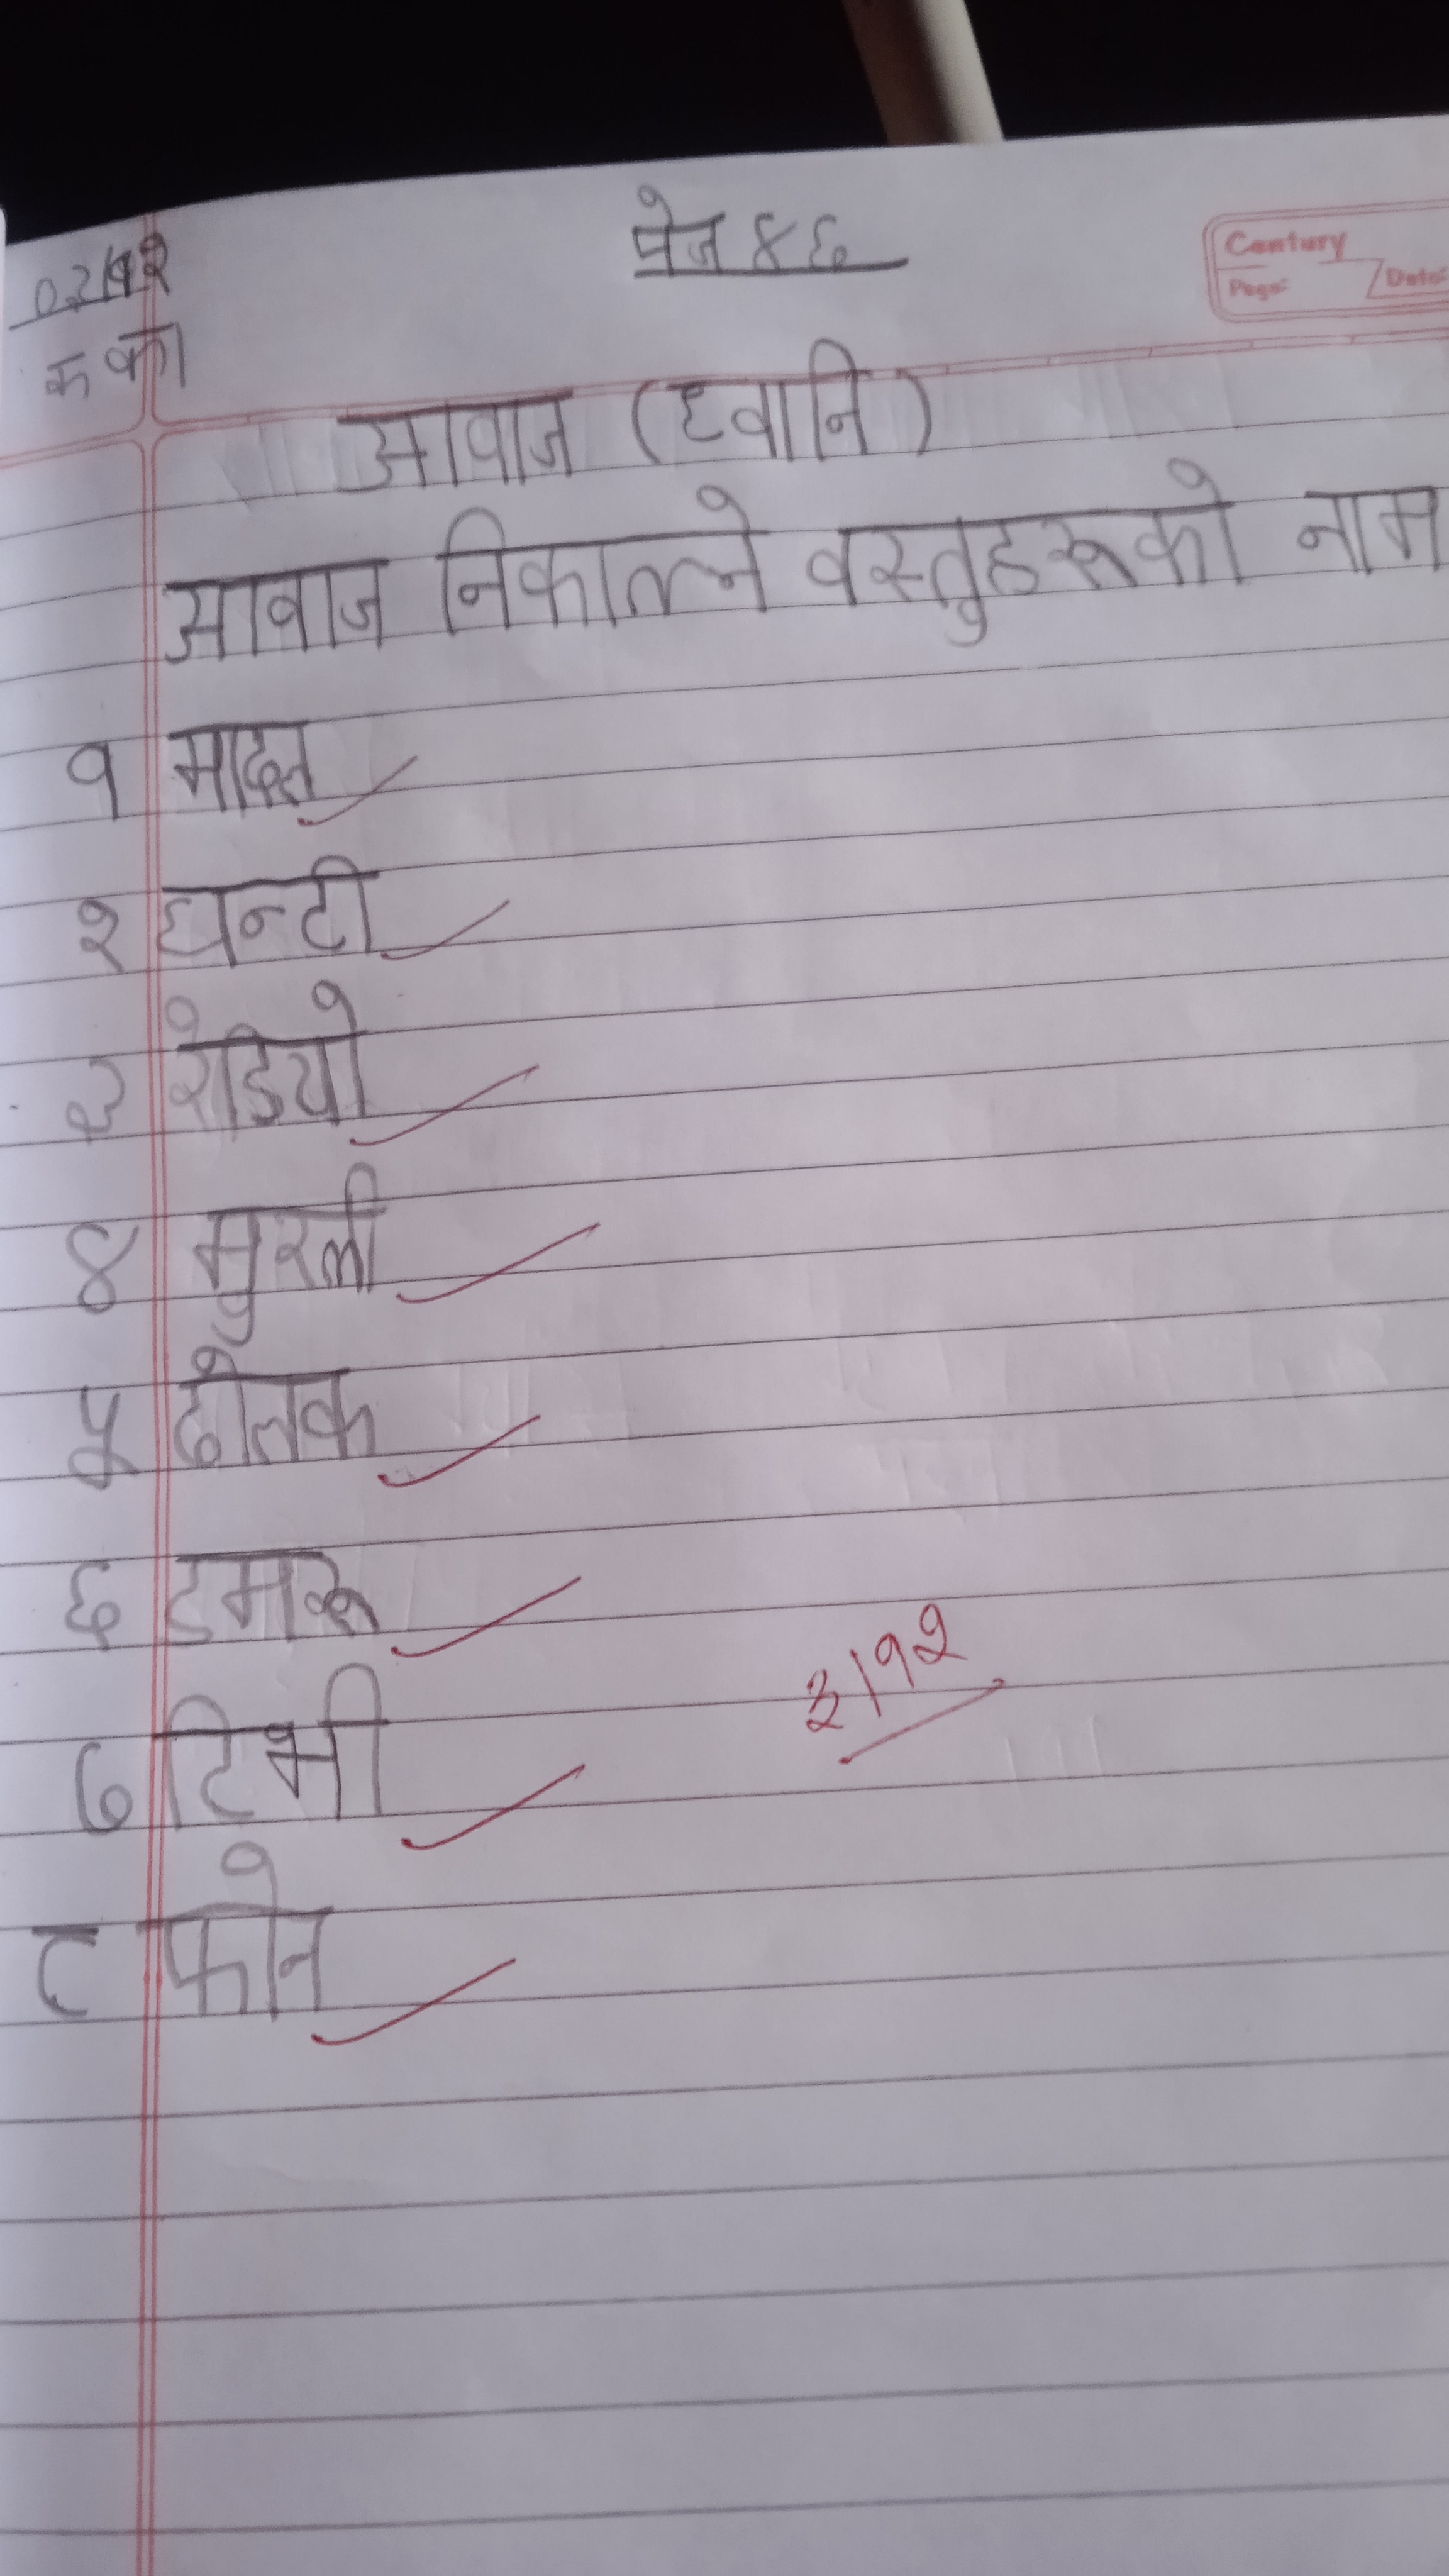 पेज ४६
Century
Page: Date:
०३/१२
क का
आवाज (ध्वानि)
आवाज निकाल्ने वस्तुहरूको नाम
१ मादल
२ घन्टी
३ रेडियो
४ मुरली
५ ढोलक
६ डमरू
७ टिभी
८ फोन
३/१२